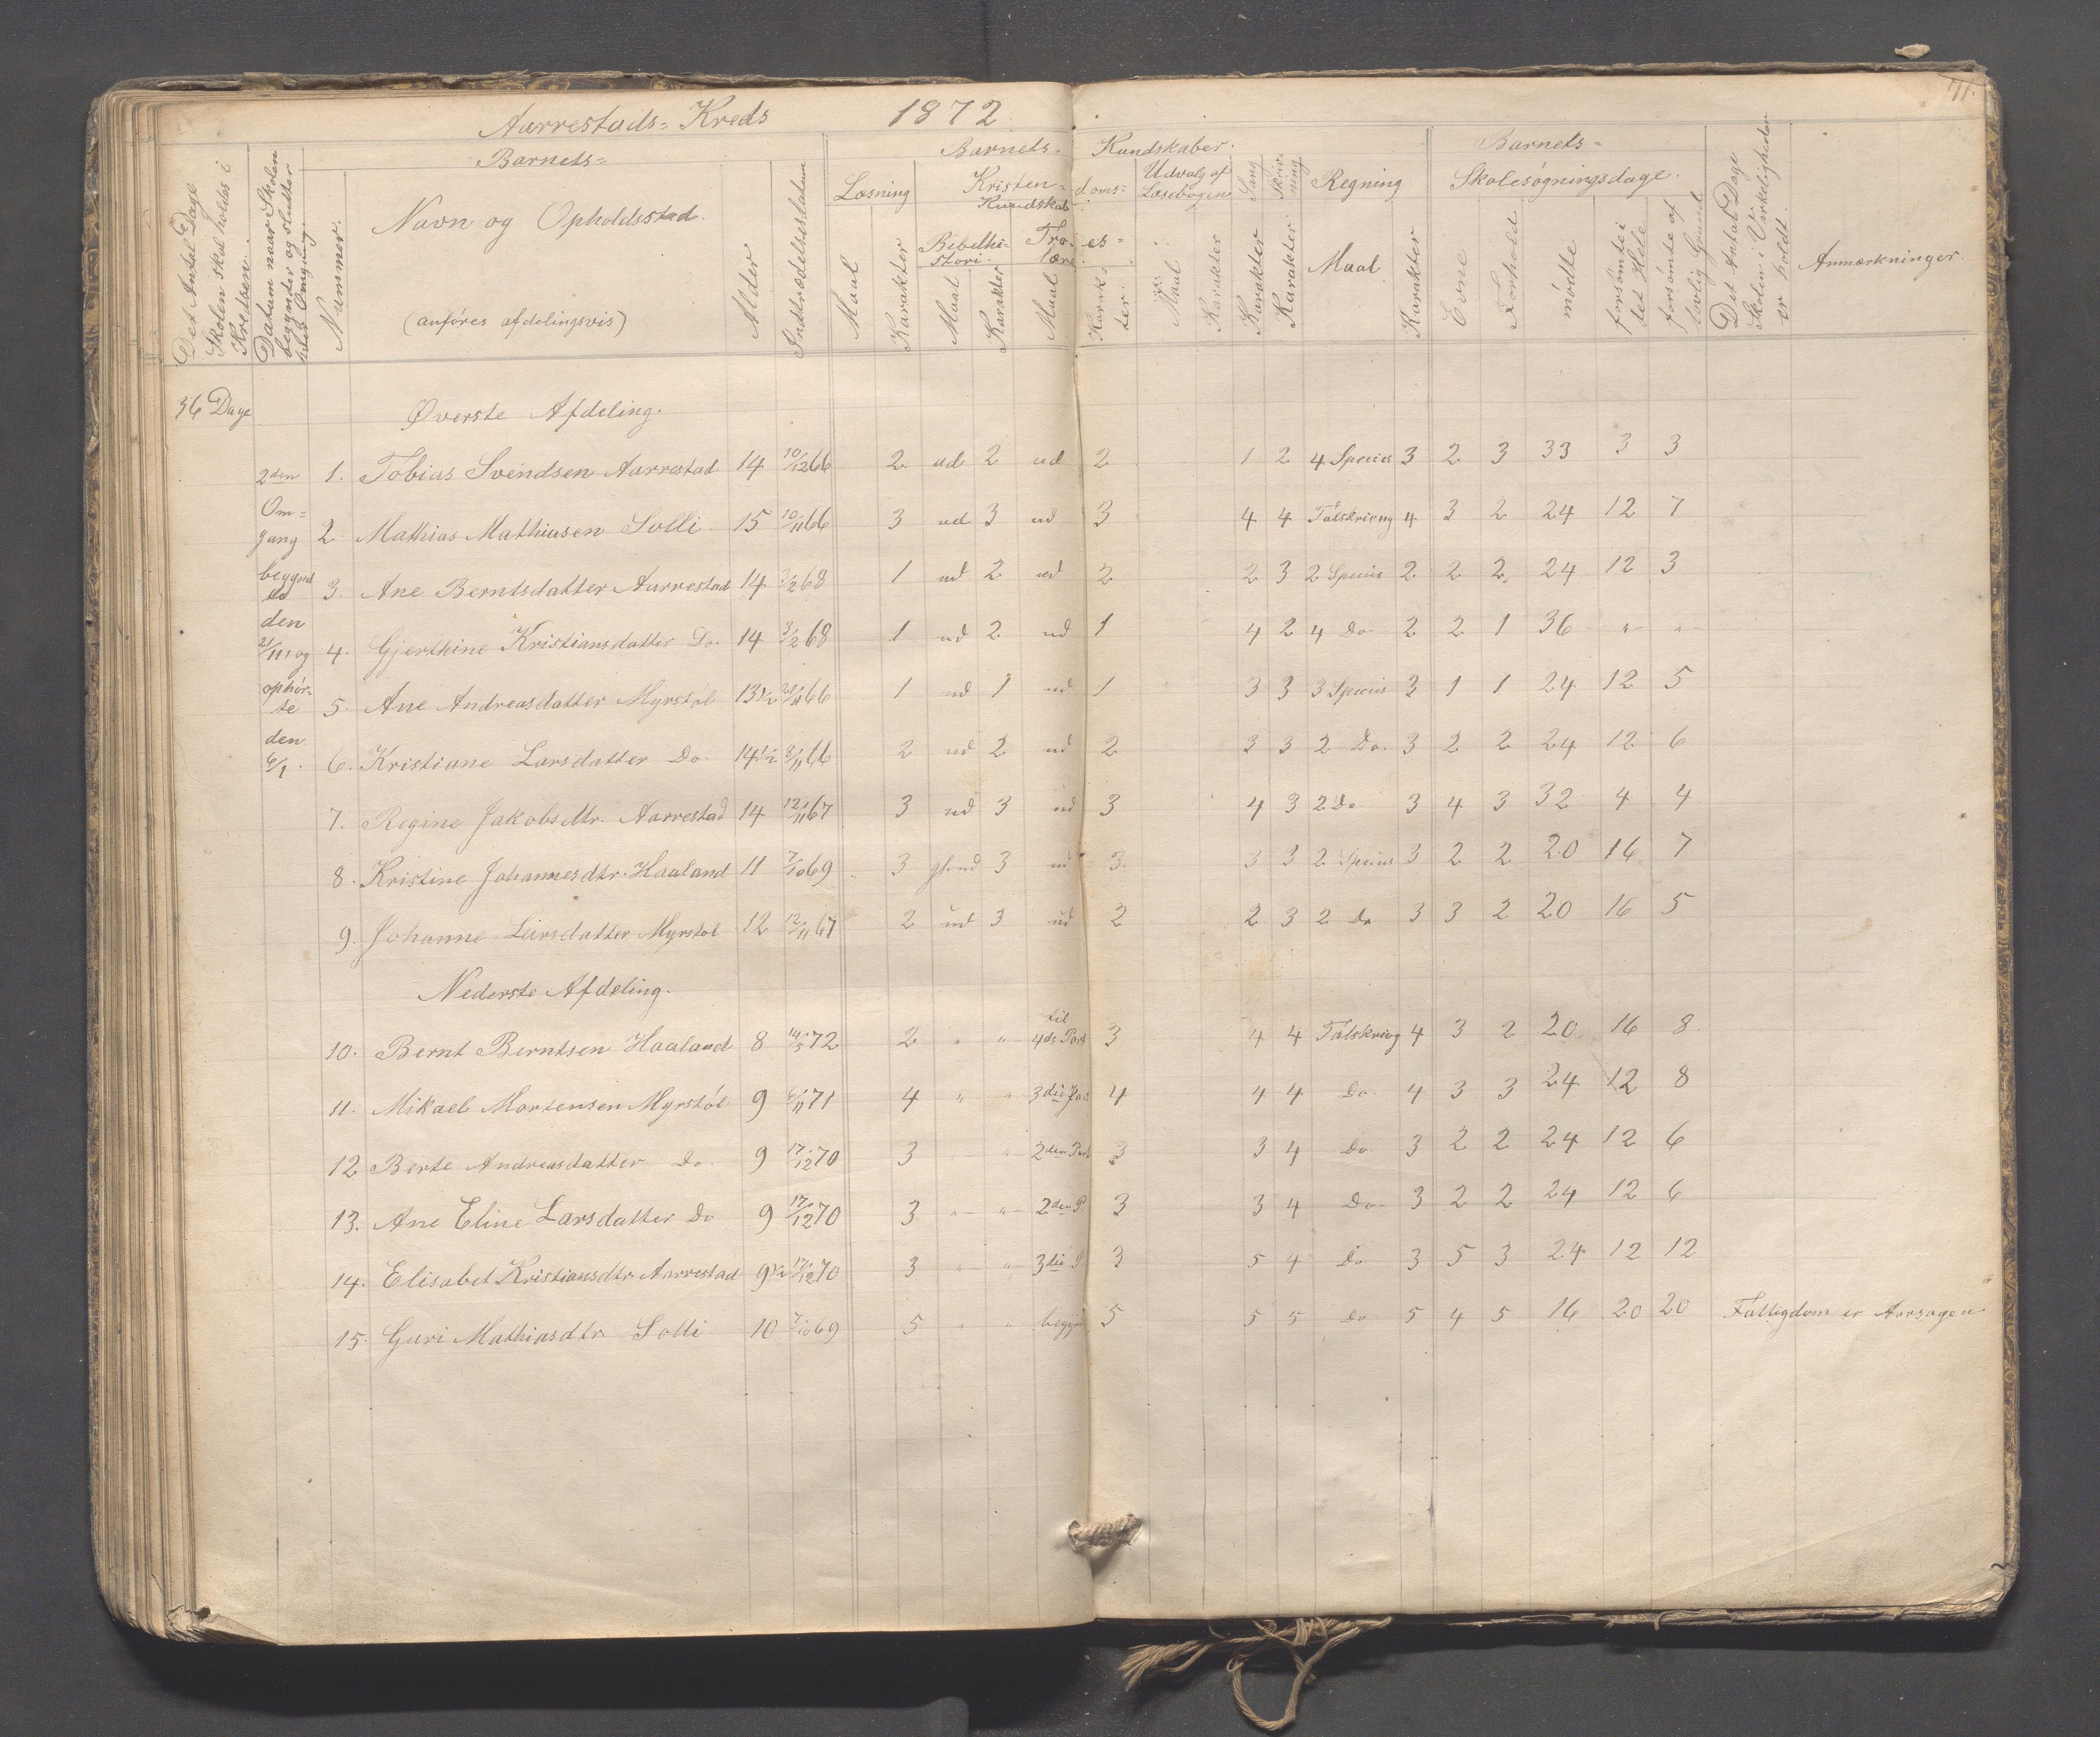 71.
Aarrestads=Kreds 1872
Det Antal Dage Skolen skal holdes i Kredsen.
Datum naar Skolen begynder og slutter hver Omgang.
Barnets=
Nummer.
Navn og Opholdsstad.
(anføres afdelingsvis)
Alder
Indtrædelsesdatum
Barnets= Kundskaber.
Læsning
Maal Karakter
Kristendoms= Kundskab
Bibelhistori. Maal Karakter
Troeslære. Maal Karakter.
Udvalg af Læsebogen Maal Karakter
Sang Karakter
Skrivning Karakter
Regning Maal Karakter
Barnets= Skolesøgningsdage.
Evne Forholde mødte forsømte i det Hele forsømte af lovlig Grund
Det Antal Dage Skolen i Virkeligheden er holdt.
Anmærkninger.
36 Dage
Øverste Afdeling.
2den Omgang
den 21/11 og ophørte den 6/1.
1. Tobias Svendsen Aarrestad 14 10/12 66 2 ud 2 ud 2 1 2 4 Species 3 2 3 33 3 3
2 Mathias Mathiasen Solli 15 10/11 66 3 ud 3 ud 3 4 4 Talskrivng 4 3 2 24 12 7
3. Ane Berntsdatter Aarrestad 14 3/2 68 1 ud 2 ud 2 2 3 2 Species 2 2 2 24 12 3
4. Gjerthine Kristiansdatter Do. 14 3/2 68 1 ud 2 ud 1 4 2 4 Do 2 2 1 36 " "
5. Ane Andreasdatter Myrstøl 13 1/2 21/11 66 1 ud 1 ud 1 3 3 3 Species 3 1 1 24 12 5
6. Kristiane Larsdatter Do. 14 1/2 8/11 66 2 ud 2 ud 2 3 3 2 Do. 3 2 2 24 12 6
7. Regine Jakobsdtr. Aarrestad 14 12/11 67 3 ud 3 ud 3 4 3 2 Do 3 4 3 32 4 4
8. Kristine Johannesdtr. Haaland 11 7/10 69 3 ud 3 ud 3 3 3 2 Species 3 2 2 20 16 7
9. Johanne Larsdatter Myrstøl 12 12/11 67 2 ud 3 ud 2 2 3 2 Do 3 3 2 20 16 5
Nederste Afdeling.
10. Bernt Berntsen Haaland 8 14/5 72 2 " " til 4de Part 3 4 4 Talskrivng 4 3 2 20 16 8
11. Mikael Mortensen Myrstøl 9 6/11 71 4 " " 3die Part 4 4 4 Do 4 3 3 24 12 8
12 Berte Andreasdatter Do. 9 17/12 70 3 " " 2den Part 3 3 4 Do 3 2 2 24 12 6
13. Ane Eline Larsdatter Do 9 17/12 70 3 " " 2den P. 3 3 4 Do 3 2 2 24 12 6
14. Elisabet Kristiansdtr Aarrestad 9 1/2 17/12 70 3 " " 3die P 3 5 4 Do 3 5 3 24 12 12
15. Guri Mathiasdtr Solli 10 7/10 69 5 " " 5 5 5 Do 5 4 5 16 20 20 Fattigdom er Aarsagen